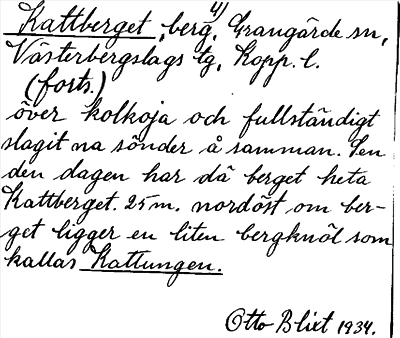 4)
Kattberget, berg, Grangärde sn,
Västerbergslags tg, Kopp. l.
(forts.)
över kolkoja och fullständigt
slagit na sönder å samman. Sen
den dagen har då berget heta
Kattberget. 25 m. nordöst om ber-
get ligger en liten bergknöl som
kallas Kattungen.
Otto Blixt 1934.